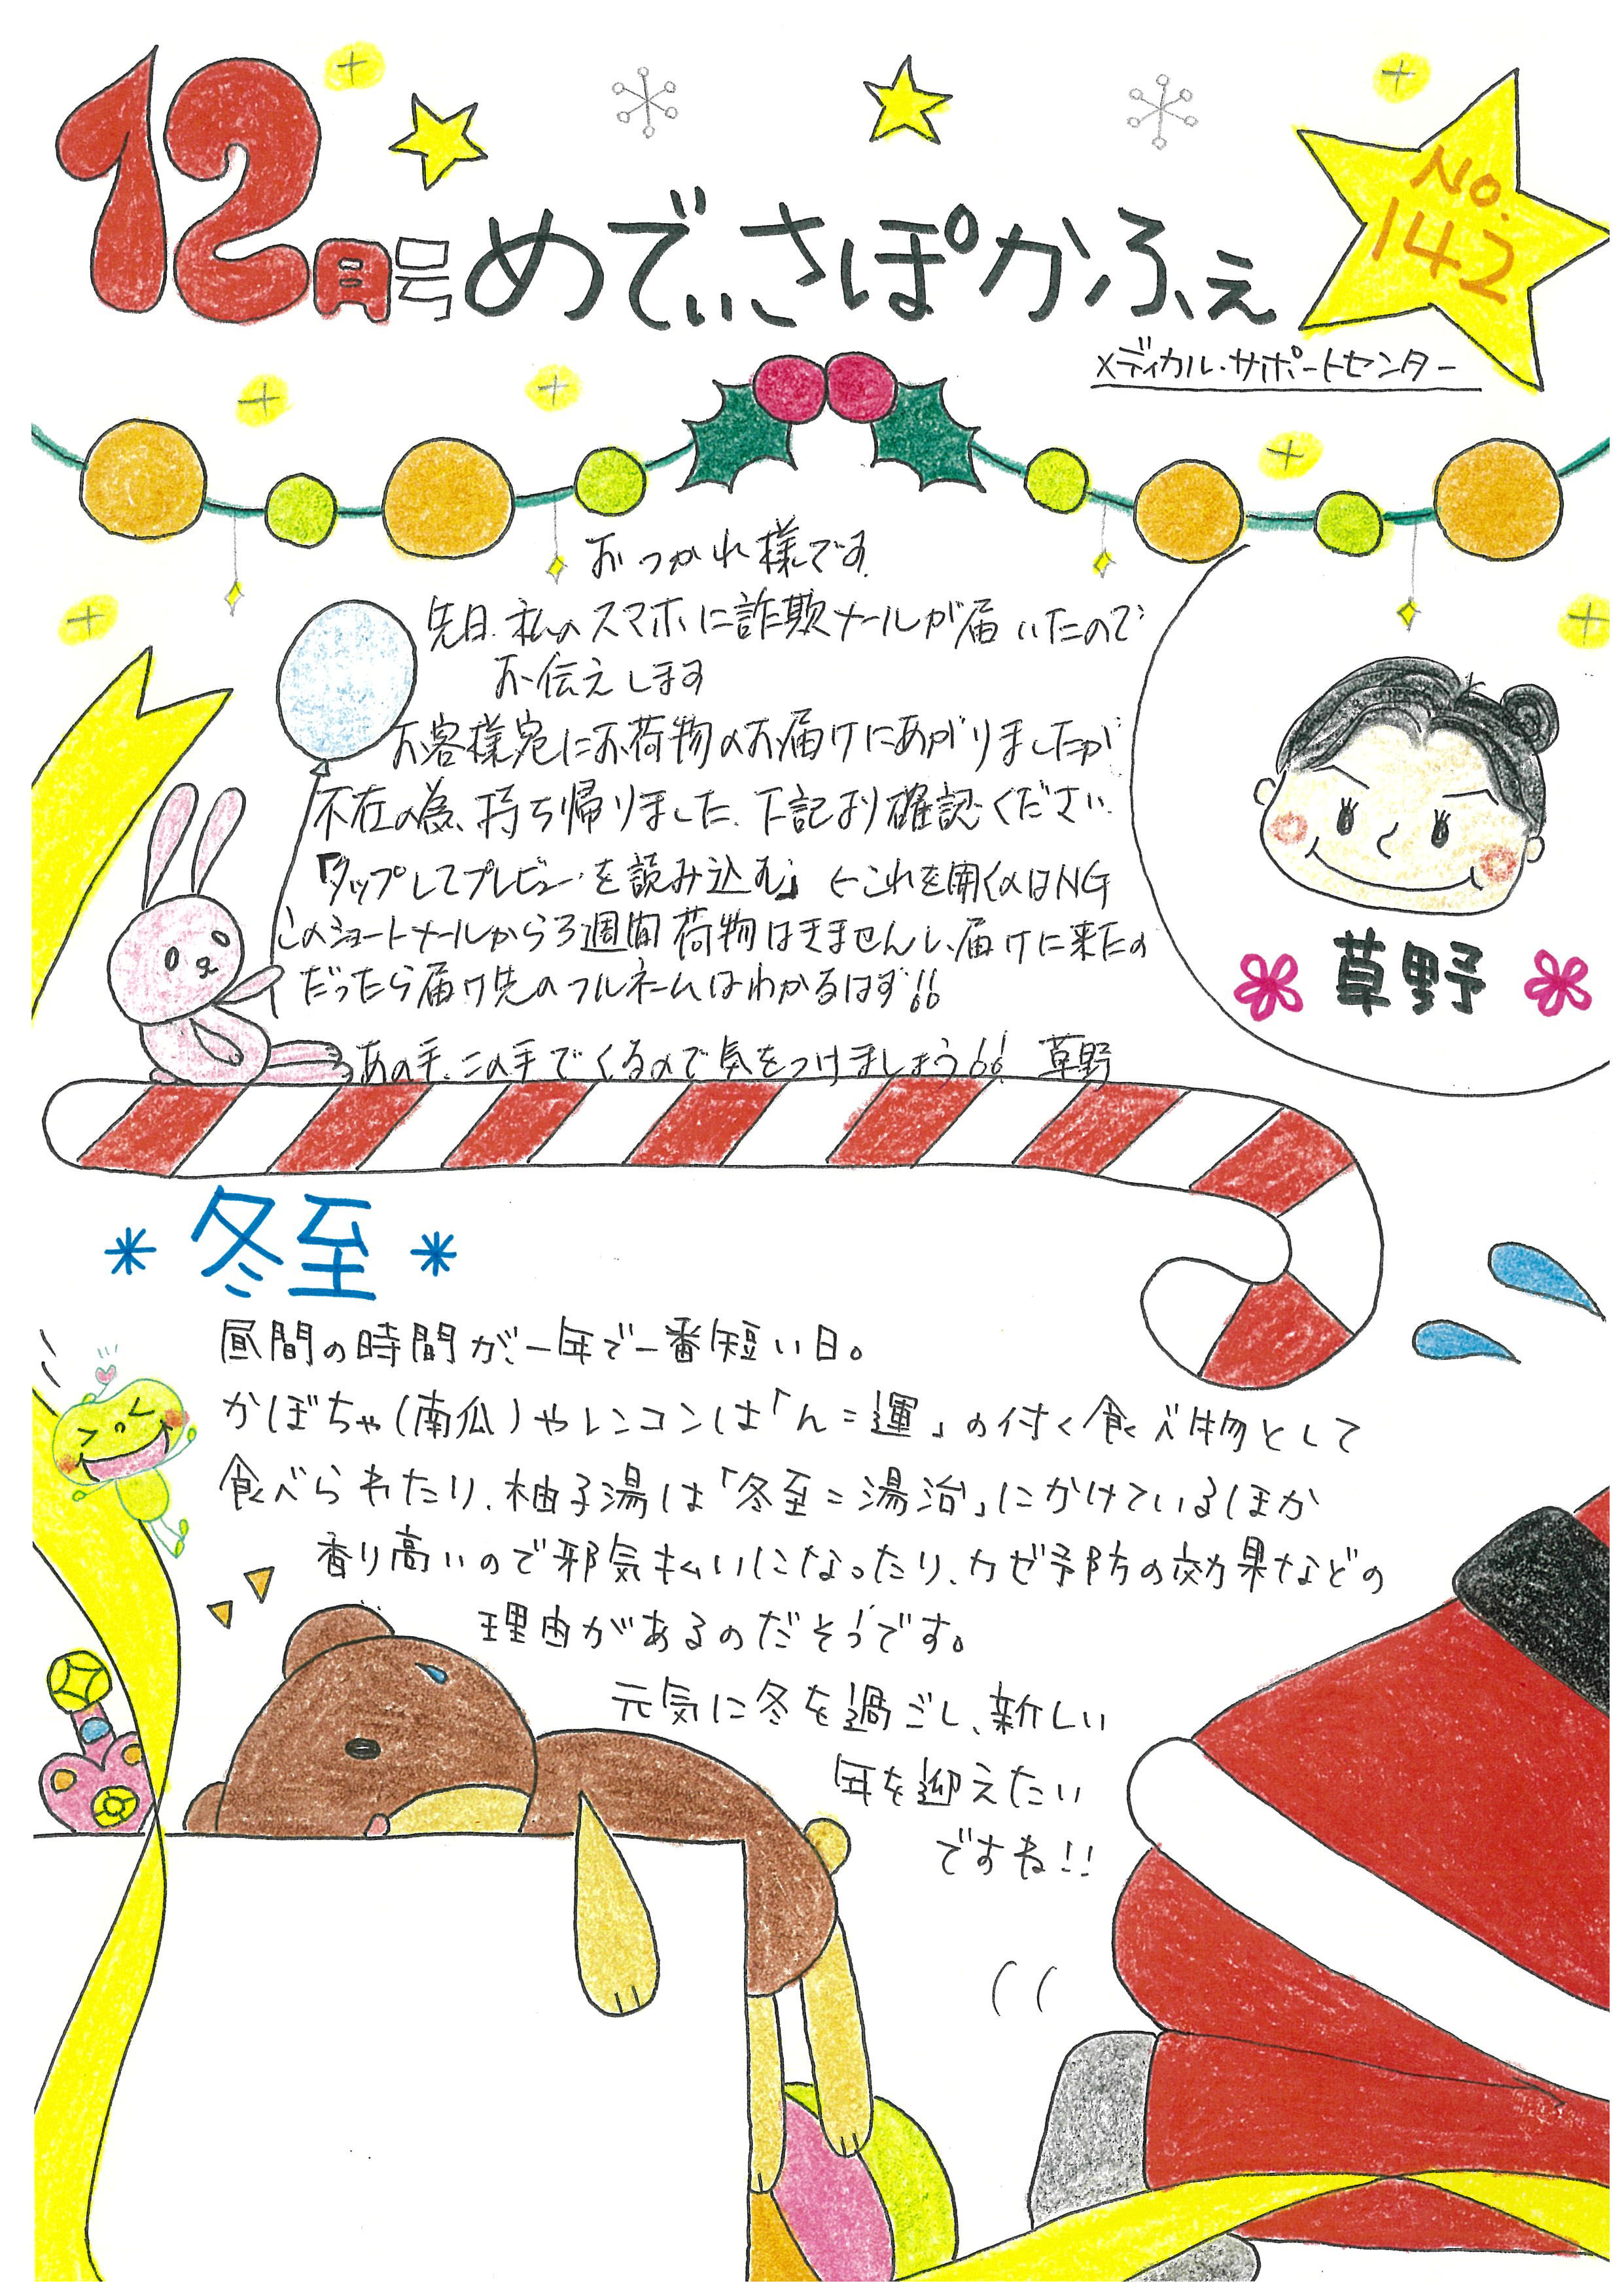 12月号 めでぃさぽかふぇ
No.
142
メディカル・サポートセンター
おつかれ様です。
先日、私のスマホに詐欺メールが届いたので
お伝えします
お客様宛にお荷物のお届けにあがりましたが
不在の為、持ち帰りました、下記より確認ください。
「タップしてプレビューを読み込む」←これを開くのはNG
このショートメールから3週間荷物はきませんし、届けに来たの
だったら届け先のフルネームはわかるはず!!
あの手、この手でくるので気をつけましょう!! 草野
草野
*冬至*
昼間の時間が、一年で一番短い日。
かぼちゃ(南瓜)やレンコンは「ん=運」の付く食べ物として
食べられたり、柚子湯は「冬至=湯治」にかけているほか
香り高いので邪気払いになったり、カゼ予防の効果などの
理由があるのだそうです。
元気に冬を過ごし、新しい
年を迎えたい
ですね!!